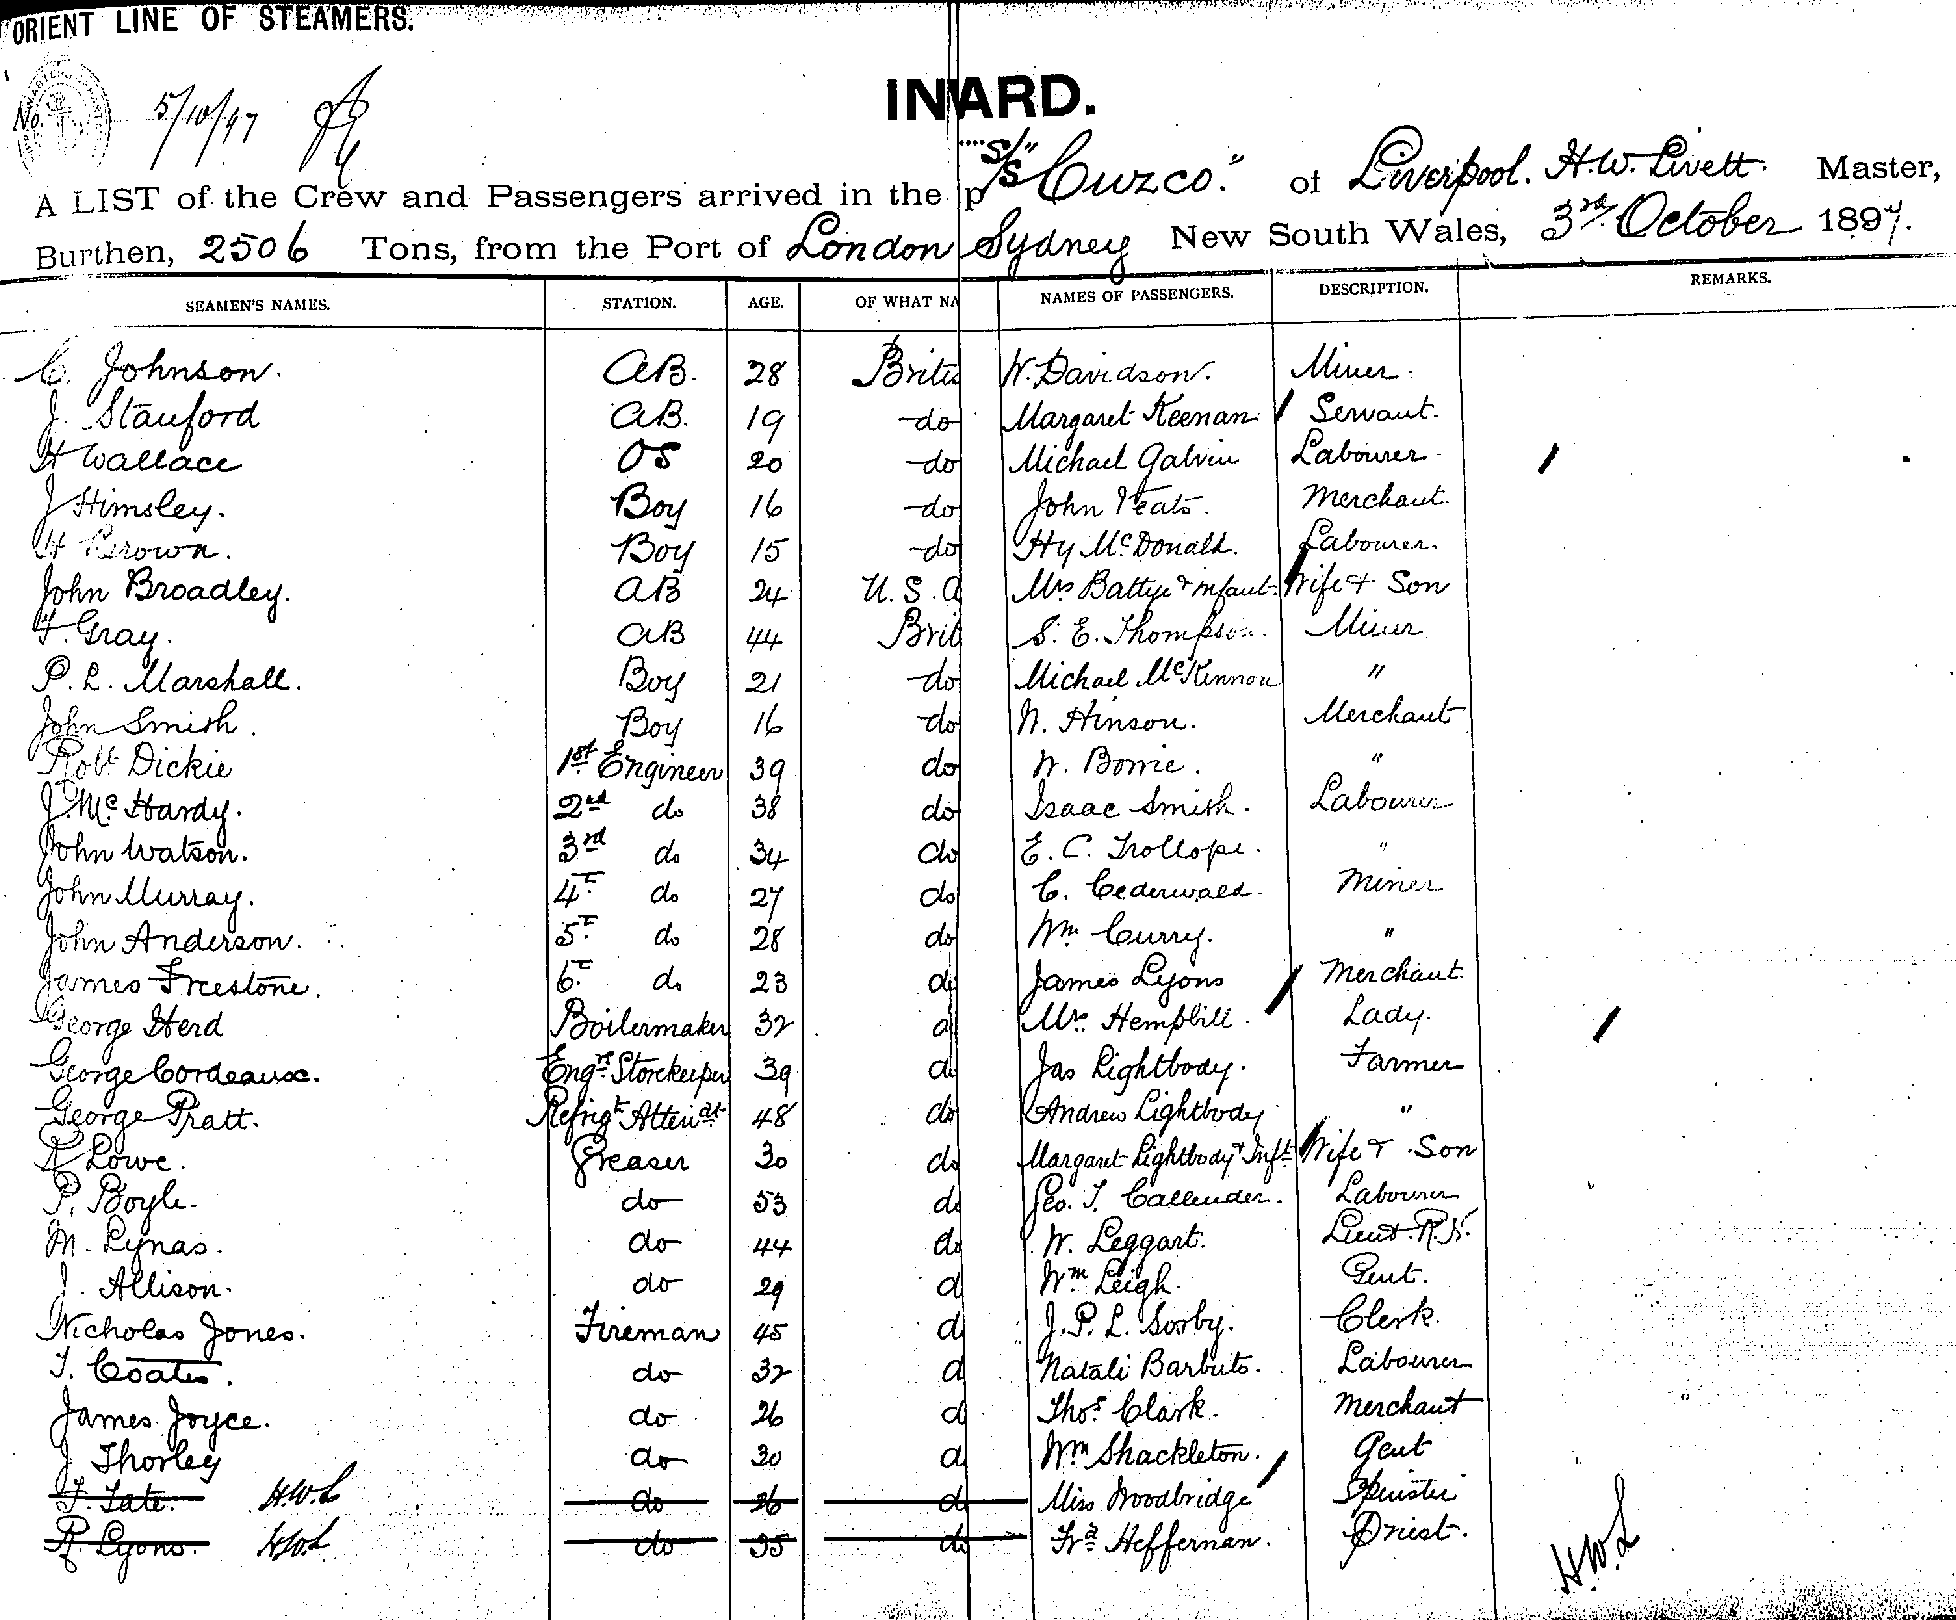 ORIENT LINE OF STEAMERS.
No. 5/10/97
INWARD.
A LIST of the Crew and Passengers arrived in the S/S "Cuzco." of Liverpool. H.W. Livett. Master,
Burthen, 2506 Tons, from the Port of London Sydney New South Wales, 3rd October 1897.
SEAMEN'S NAMES. STATION. AGE. OF WHAT NA NAMES OF PASSENGERS. DESCRIPTION. REMARKS.
C. Johnson. AB. 28 Britis W. Davidson. Miner.
J. Stanford AB. 19 do Margaret Keenan Servant.
H Wallace OS 20 do Michael Galvin Labourer
J Himsley. Boy 16 do John Yeats. Merchant.
H Brown. Boy 15 do Hy McDonald. Labourer.
John Broadley. AB 24 U.S.A Mrs Battye & infant. Wife & Son
F. Gray. AB 44 Brit S. E. Thompson. Miner
P. L. Marshall. Boy 21 do Michael McKinnon "
John Smith. Boy 16 do W. Hinson. Merchant
Robt Dickie 1st Engineer 39 do W. Bowie. "
J. McHardy. 2nd do 38 do Isaac Smith. Labourer
John Watson. 3rd do 34 do E. C. Trollope. "
John Murray. 4T do 27 do C. Cederwald. Miner
John Anderson. 5T do 28 do Wm Curry. "
James Freestone. 6T do 23 do James Lyons Merchant
George Herd Boilermaker 32 d Mrs Hemphill. Lady.
George Cordeaux. Engrs Storekeeper 39 d Jas Lightbody. Farmer
George Pratt. Refrigt Attendt 48 do Andrew Lightbody "
R Lowe. Greaser 30 do Margaret Lightbody & Inft Wife & Son
P. Boyle. do 53 do Geo. T. Callender. Labourer
M. Lynas. do 44 do W. Leggart. Lieut. R.N.
J. Allison. do 29 d Wm Leigh. Gent.
Nicholas Jones. Fireman 45 d J. P. L. Sorby. Clerk.
T. Coates. do 32 d Natali Barbuto. Labourer
James Joyce. do 26 d Thos Clark. Merchant
J Thorley do 30 d Wm Shackleton. Gent
F. Tate. H.W.L do 26 d Miss Woodbridge Spinster
R Lyons. H.W.L do 35 do Frs Heffernan. Priest.
H.W.L